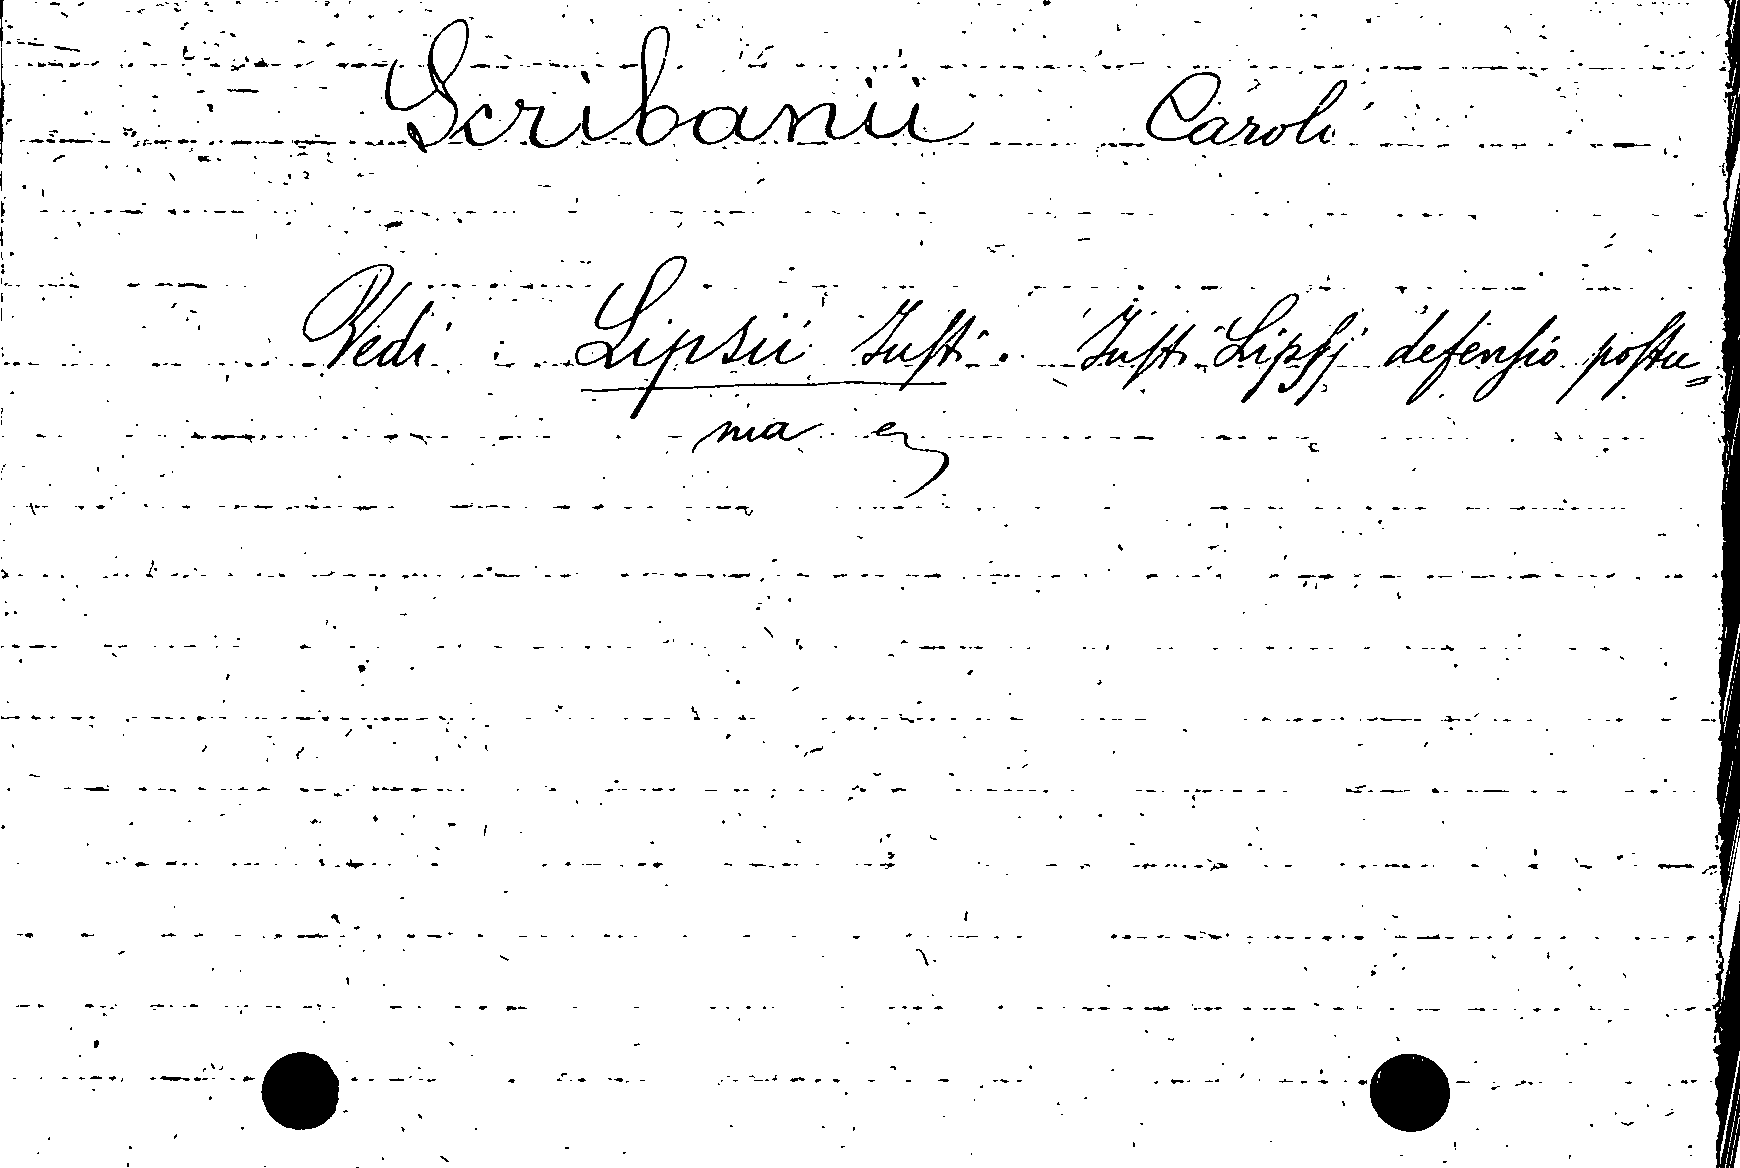 Scribanii Caroli
Vedi : Lipsii Justi. Justi Lipsj defensio postu=
ma